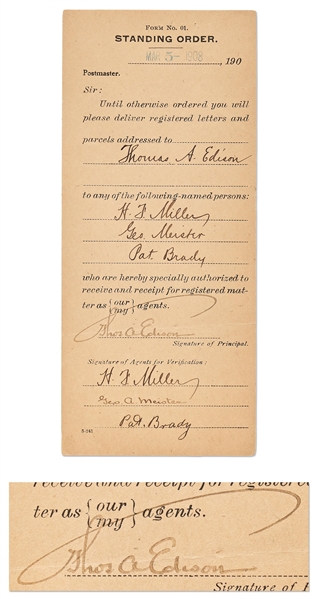 FORM No. 01.
STANDING ORDER.
MAR 5- 1908, 190
Postmaster.
Sir:
Until otherwise ordered you will
please deliver registered letters and
parcels addressed to
Thomas A. Edison
to any of the following-named persons:
H. F. Miller
Geo. Meister
Pat Brady
who are hereby specially authorized to
receive and receipt for registered mat-
ter as {our/my} agents.
Thos A Edison
Signature of Principal.
Signature of Agents for Verification:
H. F. Miller
Geo. A Meister
Pat. Brady
S-141
receive and receipt for registered
ter as {our/my} agents.
Thos A Edison
Signature of P